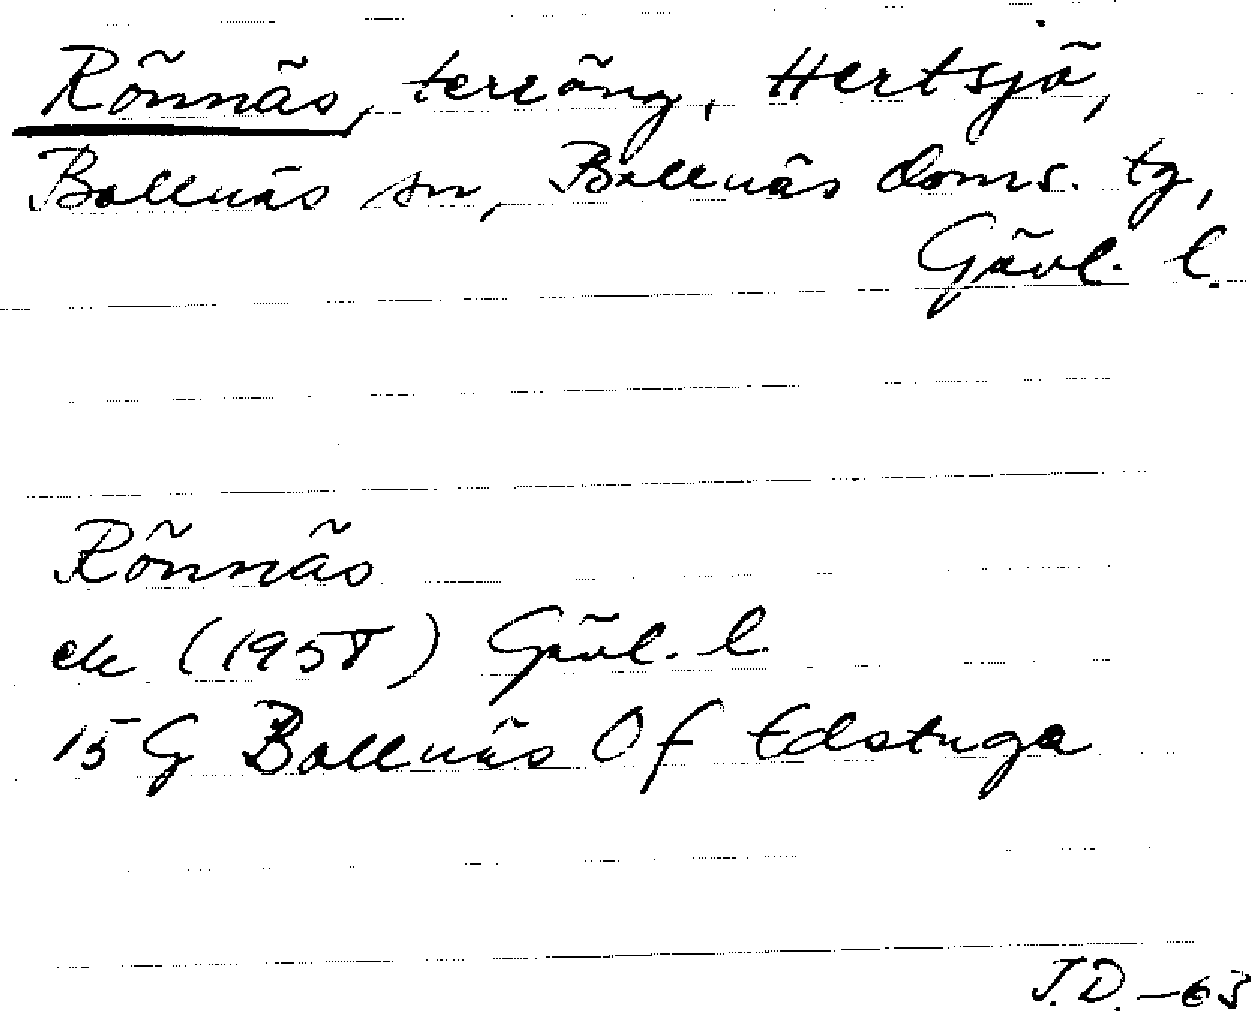 Rönnäs, terräng, Hertsjö,
Bollnäs sn, Bollnäs doms. tg,
Gävl. l.
Rönnäs
ek (1958) Gävl. l.
15 G Bollnäs Of Edstuga
J.D. -63